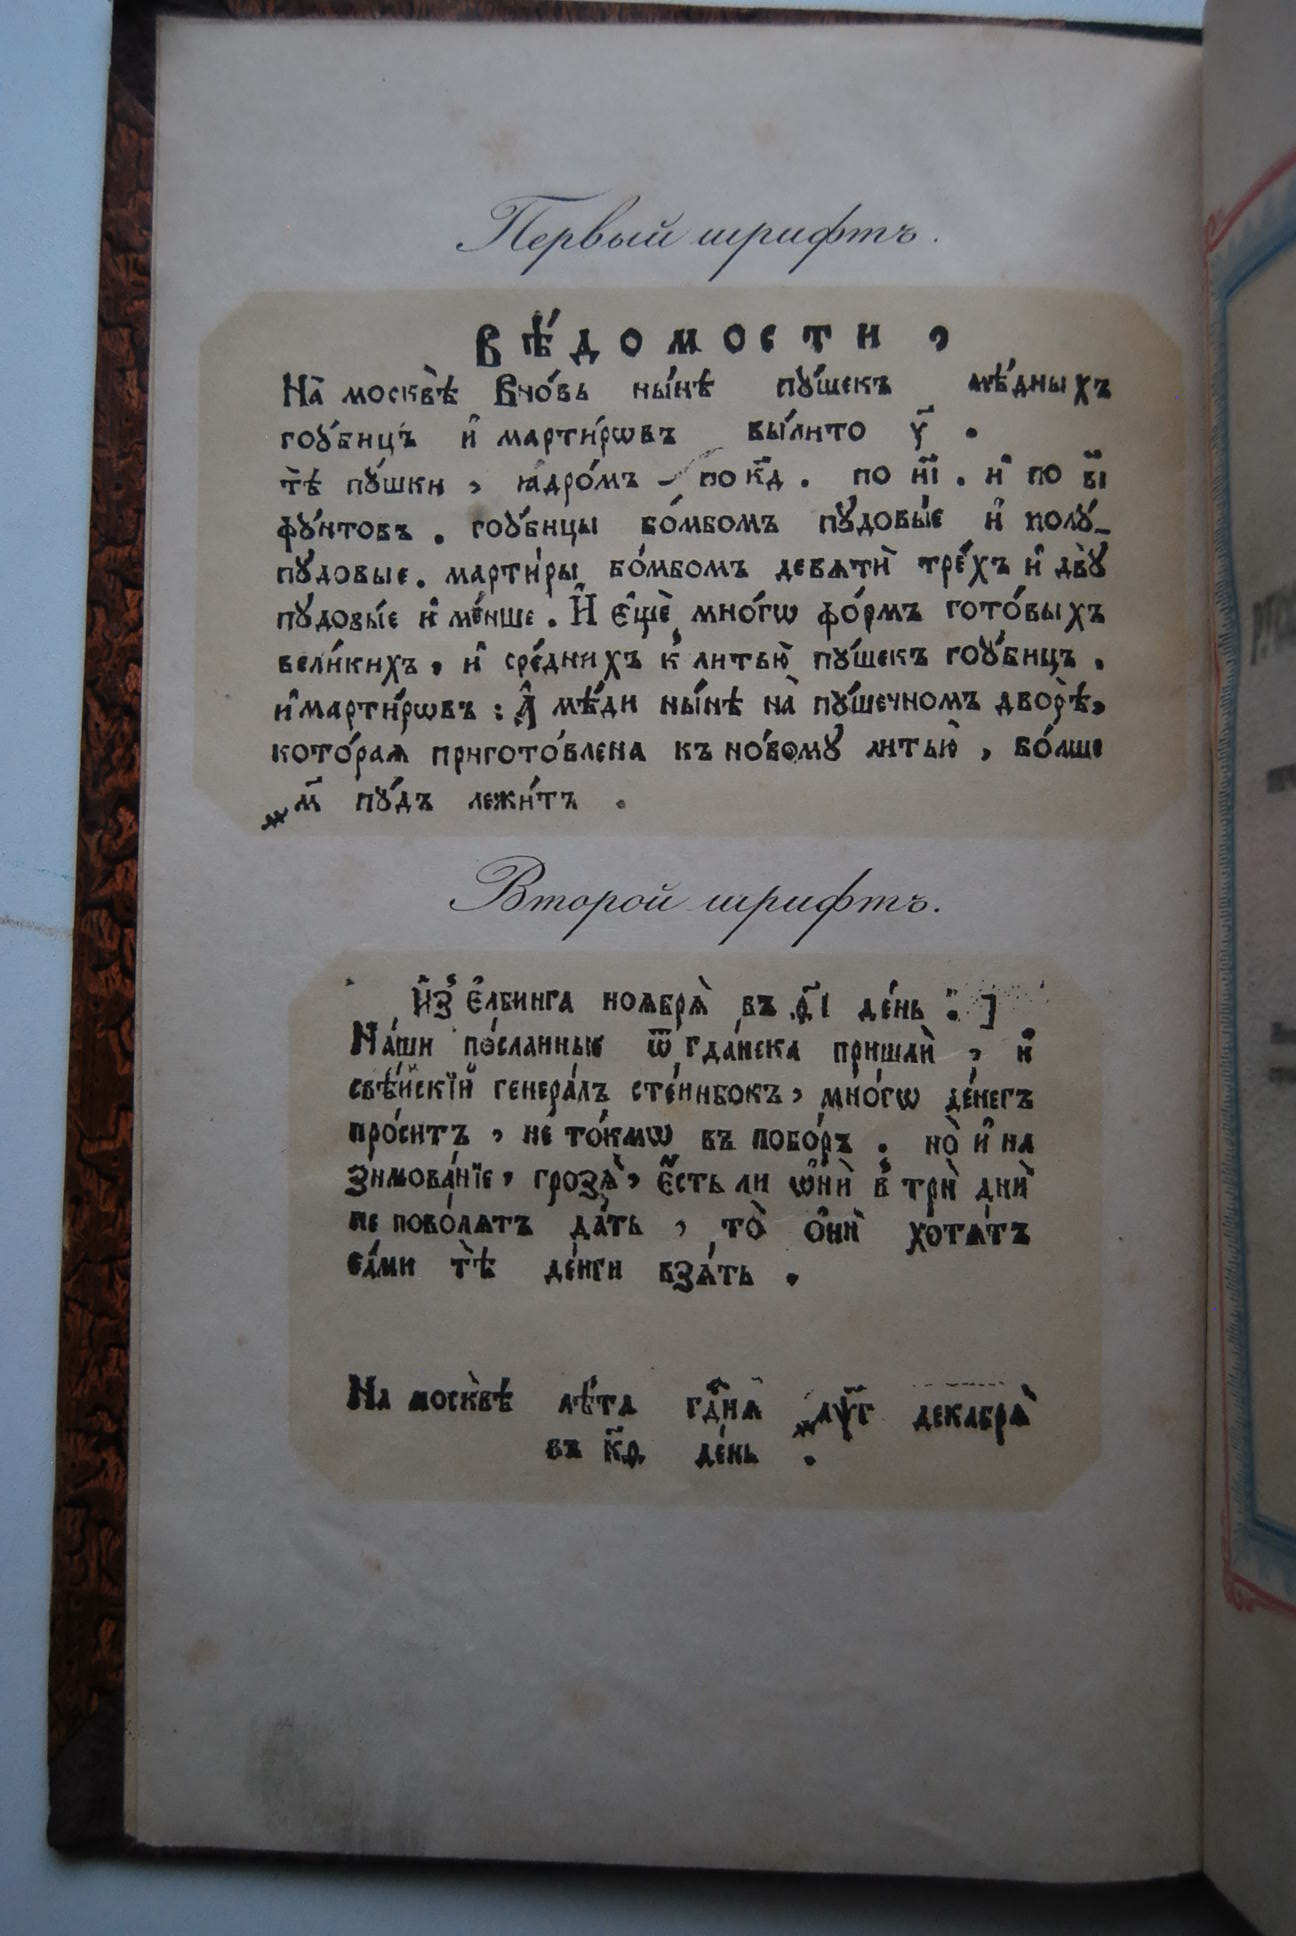 Первый шрифтъ.
ВѢ́ДОМОСТИ,
На̀ москвѣ̀ Вно́вь ны́нѣ пу́шекъ мѣ́дныхъ
гоу́бицъ и҆ марти́рѡвъ вы́лито у҃ .
тѣ̀ пу́шки, ꙗдро́мъ – по к҃д . по н҃і . и҆ по в҃і
фу́нтовъ . гоу́бицы бо́мбомъ пудовы́е и҆ полу́-
пудовые. марти́ры бо́мбомъ девѧти̇̀ тре́хъ и҆ двꙋ̀
пудовы́е и҆ ме́нше. И҆ є҆щѐ мно́гѡ фо́рмъ гото́выхъ
вели́кихъ, и҆ сре́днихъ к̾ литью̀ пу́шекъ гоу́бицъ .
и҆марти́рѡвъ : А҆ мѣ́ди ны́нѣ на̀ пу́шечномъ дворѣ̀,
кото́раѧ пригото́влена къ но́вому литью̀, бо́лше
҂м҃ пу́дъ лежи́тъ .
Второй шрифтъ.
И҆з̾ є҆лбинга ноѧбрѧ̀ въ а҃і де́нь . ]
На́ши по́сланные ѿ гда́нска пришли̇̀, и҆
свѣ́йскїй генера́лъ сте́йнбокъ, мно́гѡ де́негъ
про́ситъ, не то́кмѡ въ побо́ръ . но̀ и҆ на
зимова́нїе, грозѧ̀, є҆́сть ли ѡ҆нѝ в̾ трѝ днѝ
не поволѧ́тъ да́ть, то̀ о҆нѝ хотѧ́тъ
са́ми тѣ̀ де́нги взѧ́ть .
На москвѣ̀ лѣ́та гд҇нѧ ҂аѱ҃г декабрѧ̀
въ к҃д де́нь .